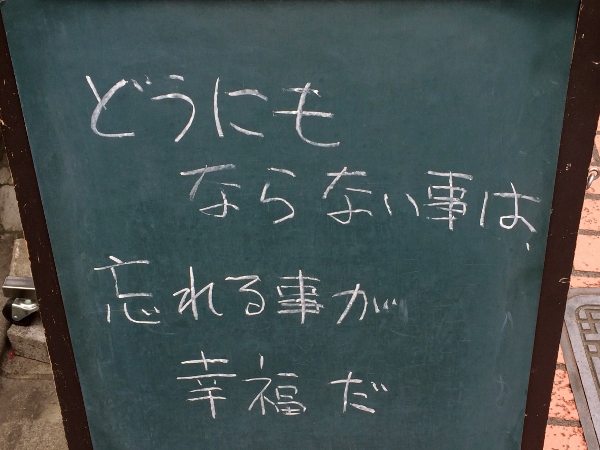 どうにも
ならない事は、
忘れる事が
幸福だ